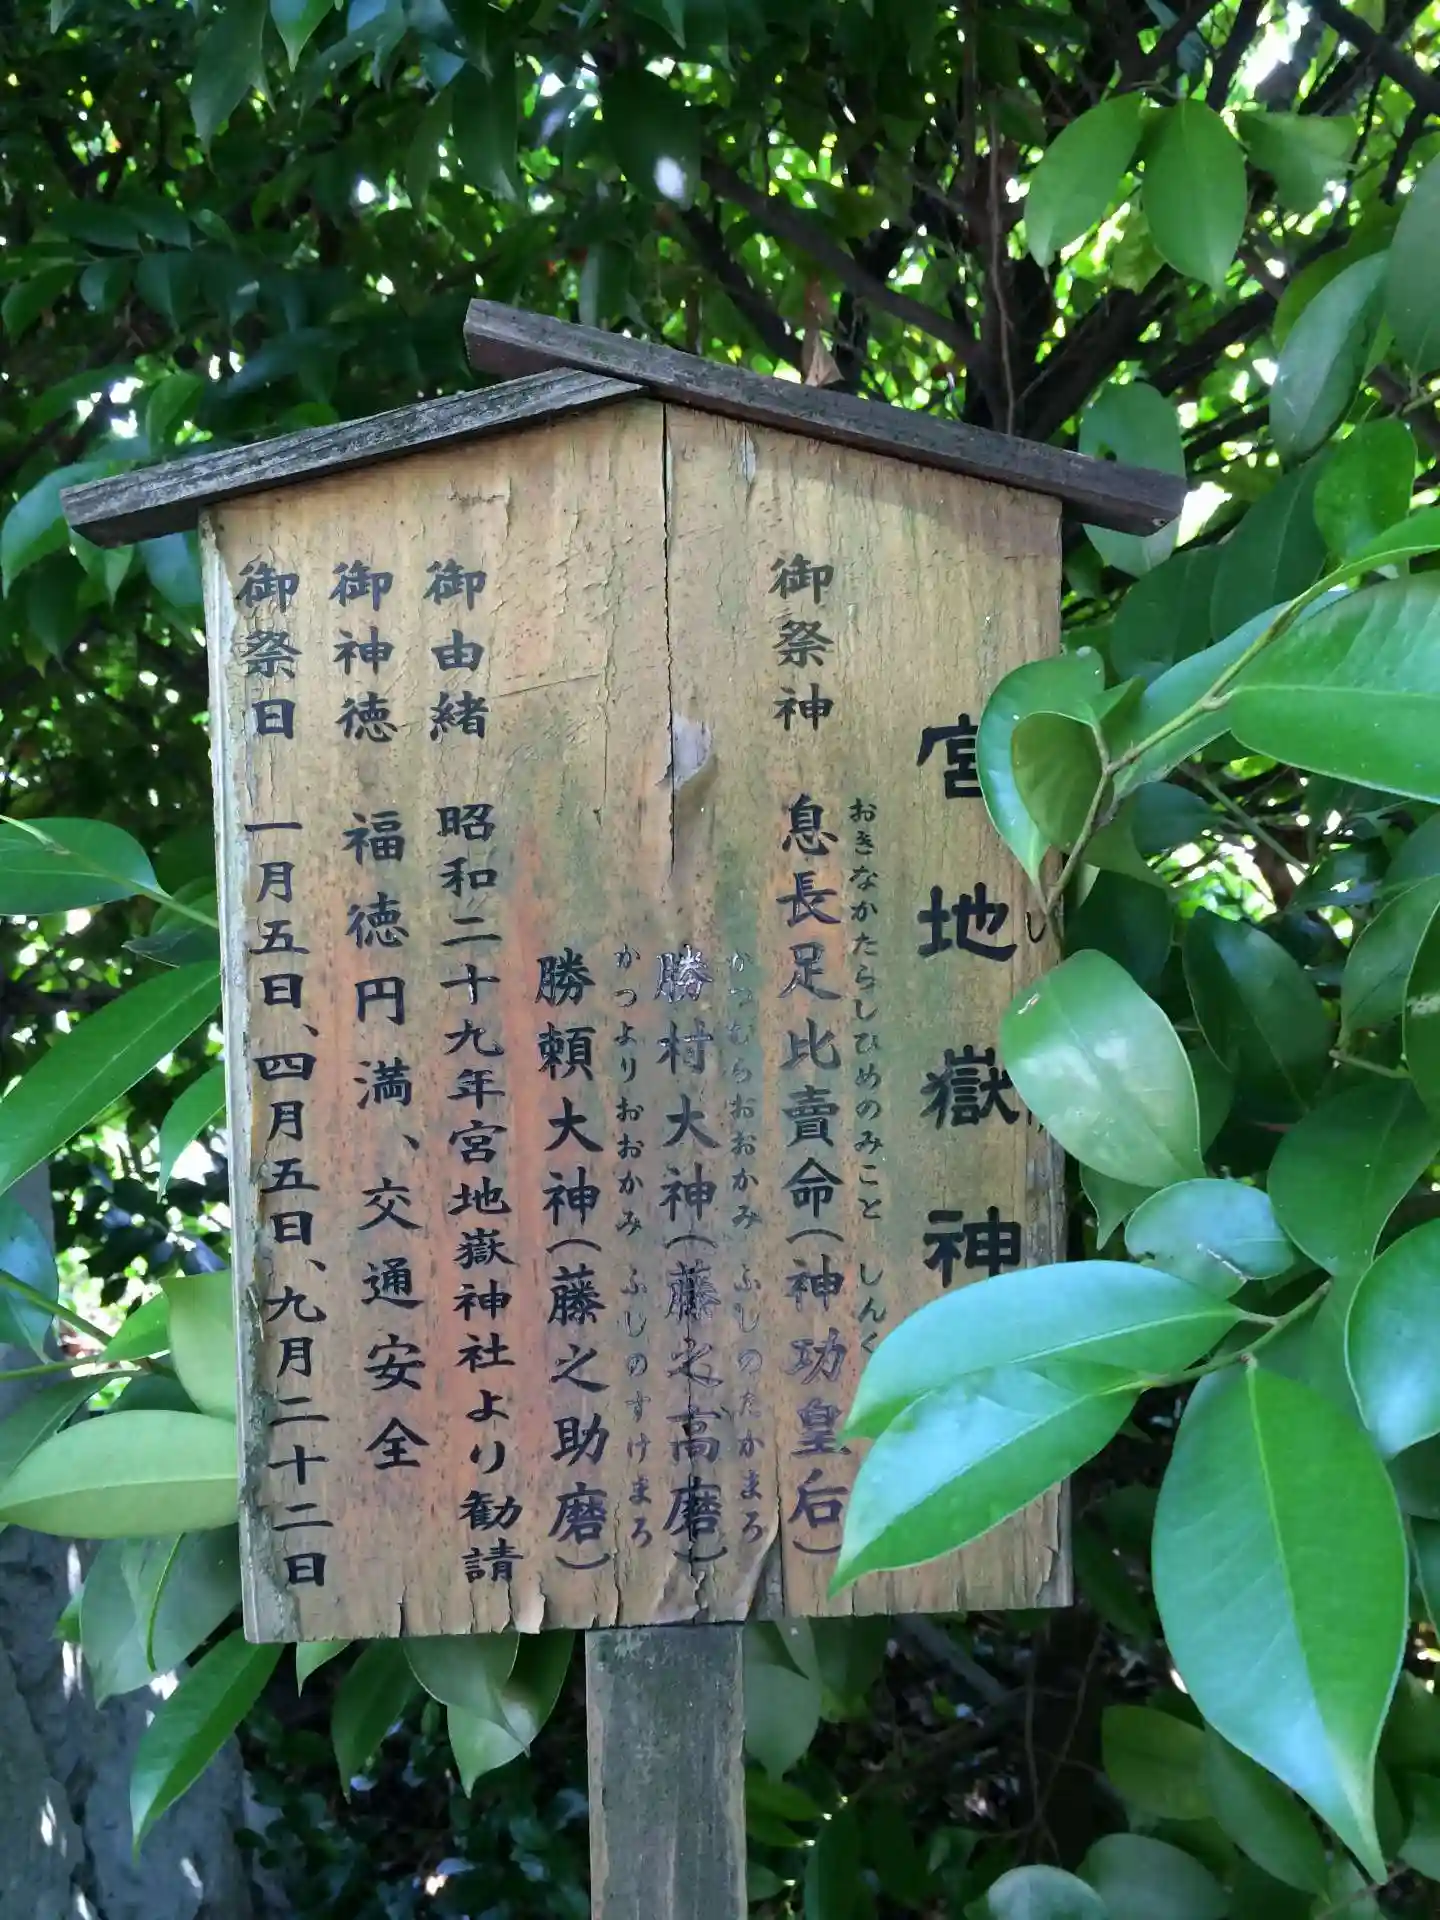 宮地嶽神
おきなかたらしひめのみこと しんく
御祭神 息長足比賣命(神功皇后)
かつむらおおかみ ふじのたかまろ
勝村大神(藤之高磨)
かつよりおおかみ ふじのすけまろ
勝頼大神(藤之助磨)
御由緒 昭和二十九年宮地嶽神社より勧請
御神徳 福徳円満、交通安全
御祭日 一月五日、四月五日、九月二十二日